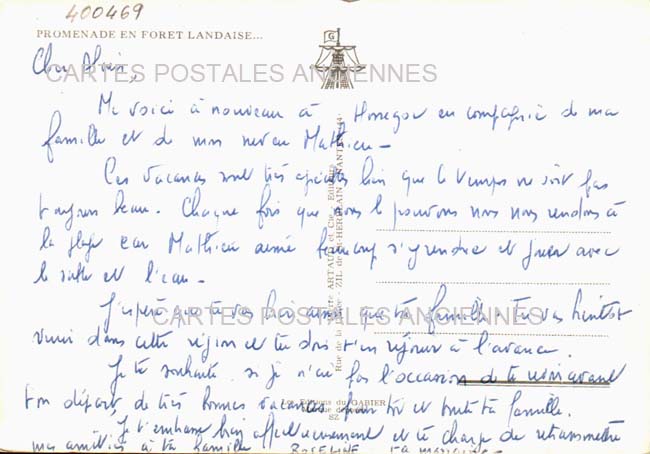 400469
PROMENADE EN FORET LANDAISE...
G
Cher Alain,
CARTES POSTALES ANCIENNES
Me voici à nouveau à Hossegor en compagnie de ma
famille et de mon neveu Mathieu -
Ces vacances sont très agréables bien que le temps ne soit pas
toujours beau. Chaque fois que nous le pouvons nous nous rendons à
la plage car Mathieu aime beaucoup s'y rendre et jouer avec
le sable et l'eau -
J'espère que tu vas bien ainsi que ta famille. tu vas bientôt
CARTES POSTALES ANCIENNES
venir dans cette région et tu dois t'en réjouir à l'avance.
Je te souhaite si je n'ai pas l'occasion de te revoir avant
ton départ, de très bonnes vacances pour toi et toute ta famille.
Je t'embrasse bien affectueusement et te charge de retransmettre
mes amitiés à ta famille ROSELINE ta marraine -
ARTAUD et Cie - Editeurs
ZIL de St-HERBLAIN NANTES - 44
Les Editions du GABIER
82